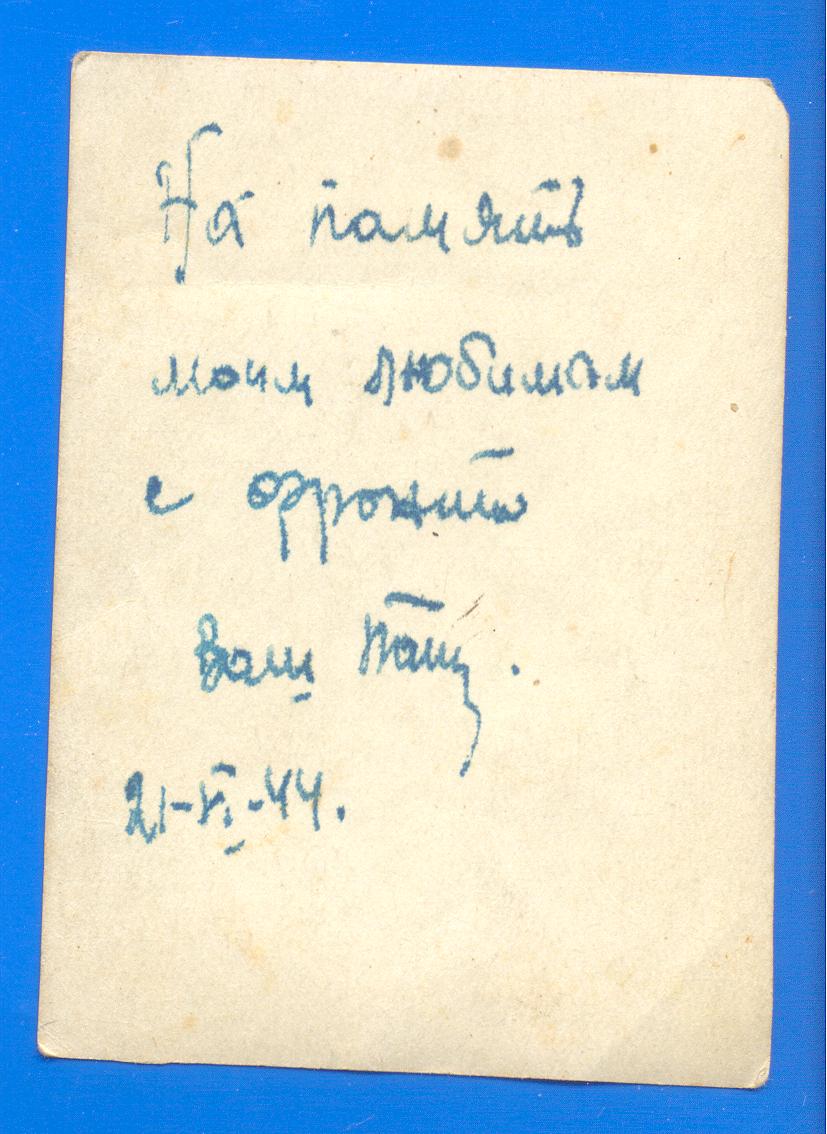 На память
моим любимым
с фронта
Ваш
21-VI-44.